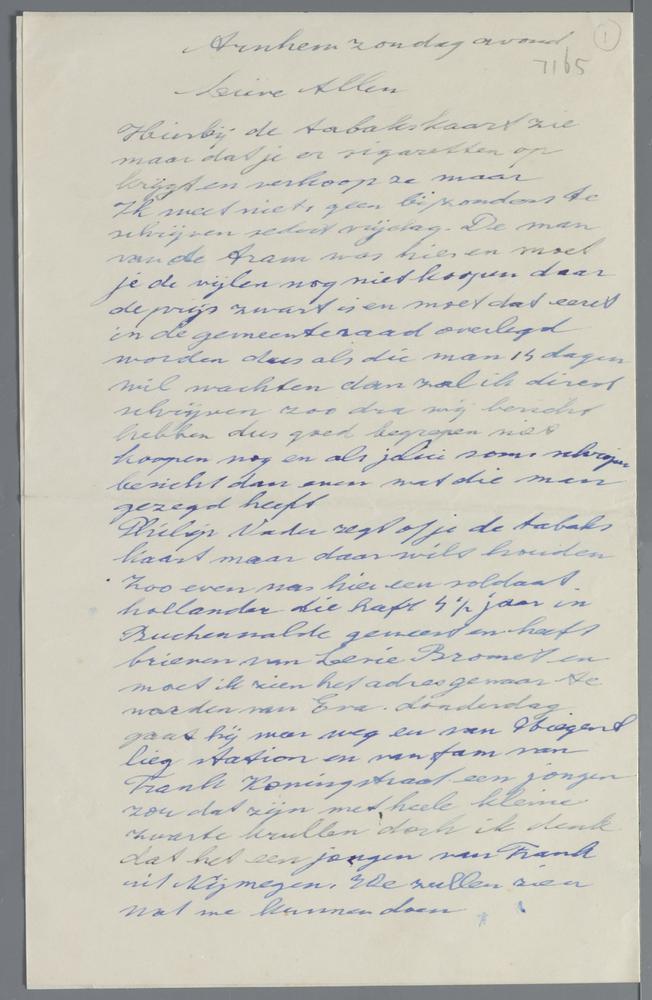 Arnhem zondag avond
1
7165
Lieve Allen
Hierbij de tabakskaart zie
maar dat je er sigaretten op
krijgt en verkoop ze maar
Ik weet niets geen bijzonders te
schrijven sedert vrijdag. De man
van de tram was hier en moet
je de vijlen nog niet koopen daar
de prijs zwart is en moet dat eerst
in de gemeenteraad overlegd
worden dus als die man 14 dagen
wil wachten dan zal ik direct
schrijven zoo dra wij bericht
hebben dus goed begrepen niet
koopen nog en als jullie soms schrijven
bericht dan even wat die man
gezegd heeft
Philip Vader zegt of je de tabaks
kaart maar daar wilt houden
Zoo even was hier een soldaat
hollander die heeft 4½ jaar in
Buchenwalde geweest en heeft
brieven van Levie Bromet en
moet ik zien het adres gewaar te
worden van Eva. donderdag
gaat hij weer weg en van
lieg station en van fam van
Frank Koningstraat een jongen
zou dat zijn met heele kleine
zwarte krullen doch ik denk
dat het een jongen van Frank
uit Nijmegen. We zullen zien
wat we kunnen doen